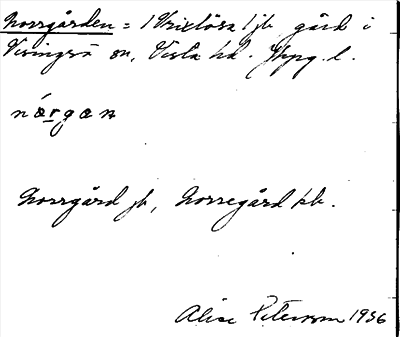 Norrgården = 1 Vrixlösa 1 jb gård i
Visingsö sn, Vista hd. Jkpg. l.
nǿrgan
Norrgård jb, Norregård kb.
Alice Peterson 1936